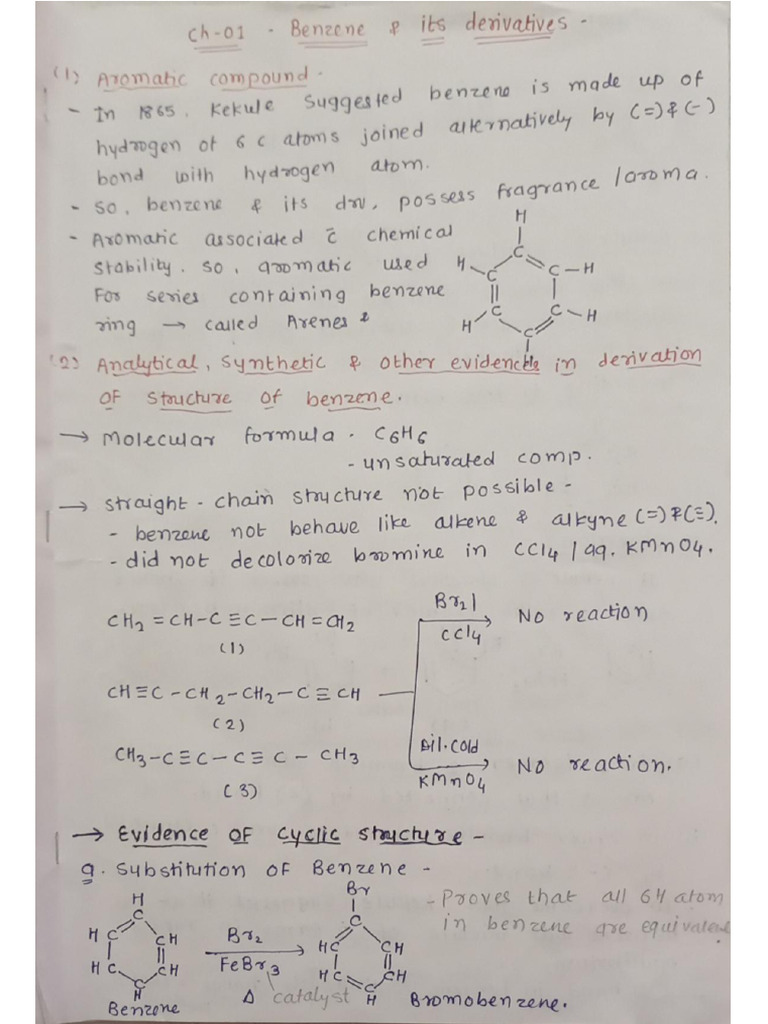 Ch-01 - Benzene & its derivatives -
(1) Aromatic compound -
- In 1865, Kekule suggested benzene is made up of
hydrogen of 6 C atoms joined alternatively by (=) & (-)
bond with hydrogen atom.
- So, benzene & its drv. possess fragrance / aroma.
- Aromatic associated c̄ chemical
stability. so, aromatic used
For series containing benzene
ring → called Arenes
H
C
H C C - H
H C C - H
C
(2) Analytical, synthetic & other evidences in derivation
OF structure of benzene.
→ Molecular formula - C6H6
- unsaturated comp.
→ straight - chain structure not possible -
- benzene not behave like alkene & alkyne (=) & (≡).
- did not decolorize bromine in CCl4 / aq. KMnO4.
CH2 = CH-C ≡ C - CH = CH2
(1)
Br2 |
CCl4
No reaction
CH ≡ C - CH2 - CH2 - C ≡ CH
(2)
CH3 - C ≡ C - C ≡ C - CH3
(3)
Dil. cold
KMnO4
No reaction.
→ Evidence OF cyclic structure -
a. Substitution OF Benzene -
- Proves that all 6H atom
in benzene are equivalent
H
C
H C CH
H C CH
C
H
Benzene
Br2
FeBr3
Δ catalyst
Br
C
HC CH
HC CH
C
H
Bromobenzene.